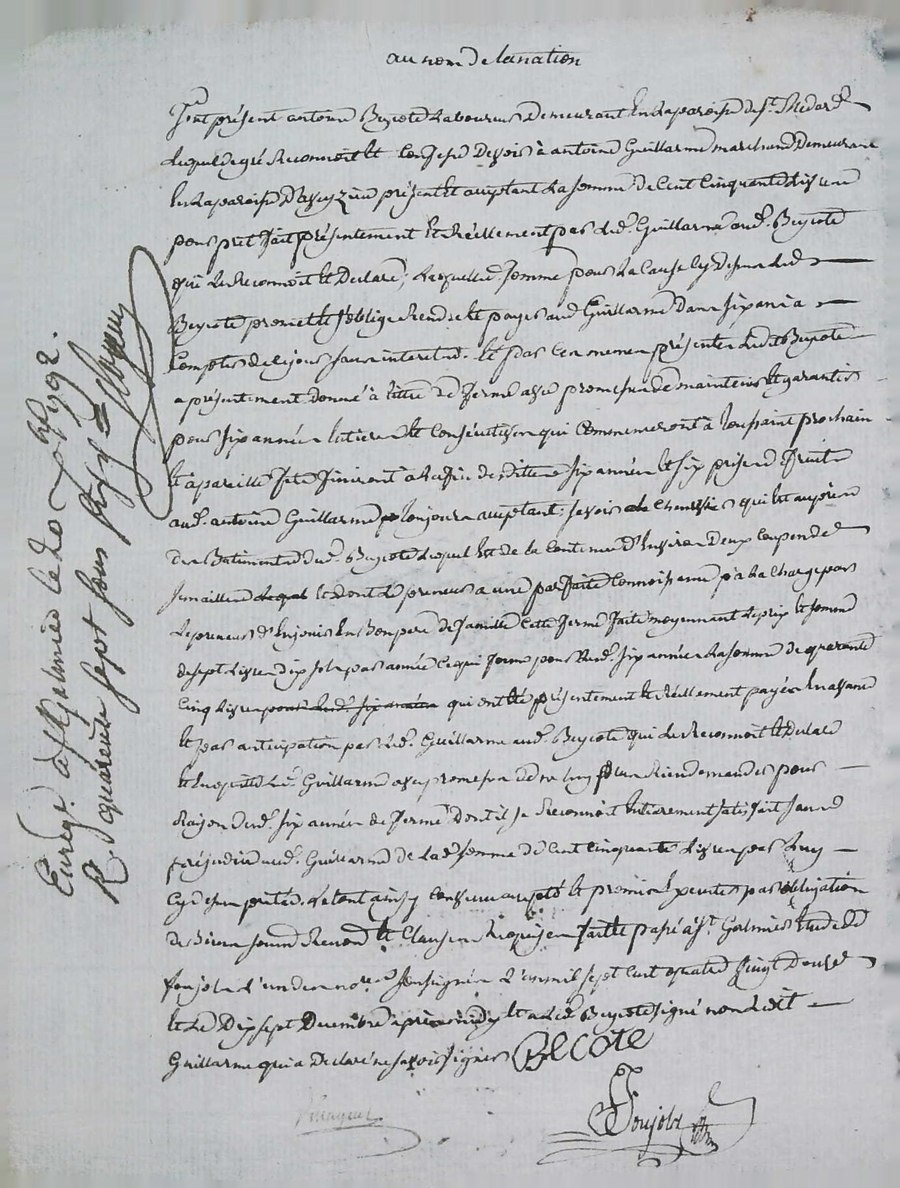 au nom de la nation
fut présent antoine Beycote Laboureur demeurant En Laparoisse de st. Medard
Lequel de gré Reconnoit et Confesse Devoir à antoine Guillarme marchand Demeurant
En Laparoisse D'aveyzieu présent et aceptant La somme de Cent Cinquante Livres
pour prêt fait présentement et Réellement par Led. Guillarme aud. Beycote
qui Le Reconnoit et Declare, Laquelle d. somme pour La Cause Cy Dessus Led
Beycote promet et s'oblige Rendre et payer aud Guillarme Dans six ans à
Compter de Cejour sans interet. Et par Ces memes présentes Ledit Beycote
a présentement donné à titre de Ferme avec promesse de maintenir et garantir
pour six années Entieres et Consécutives qui Commenceront à Toussaint prochain
Et à pareille fete finiront à La fin desdittes six années et six prises de fruits
aud. antoine Guillarme toujours aceptant, savoir qui Est au
des Batiments dud. Beycote Lequel Est de la Contenue D'Environ Deux Coupes de
semailles Et dont Le preneur a une parfaite Connoissance, à la Charge par
Le preneur d'En jouir En Bon pere de famille Cette Ferme faite moyennant Le prix Et somme
de sept Livres dix sols par année Ce qui forme pour Lesd. six années La somme de quarante
Cinq Livres qui ont Eté présentement Et Réellement payées
Et par anticipation par Led. Guillarme aud. Beycote qui Le Reconnoit Et Declare
Et En quitte Led. Guillarme avec promesse de ne luy En Rien demander pour
Raison desd. six années de Ferme Dont il se Reconnoit Entierement satisfait sans
préjudice aud. Guillarme de Lad. somme de Cent Cinquante Livres par Luy
Cy dessus pretée. Le tout ainsy Convenu par obligation
de Biens soumis Renonc. Et Clauses Requises fait Et passé à St. Galmier Etude de
Foujols L'un des notres. soussignés L'an mil sept Cent quatre vingt Douze
Et Le Dix sept Decembre après midy Et a Led. Beycote signé non Ledit
Guillarme qui a Declaré ne savoir signer BECOTE
Foujols
Enregt. à St Galmier le 20 Xbre 1792.
R quarente sept sous